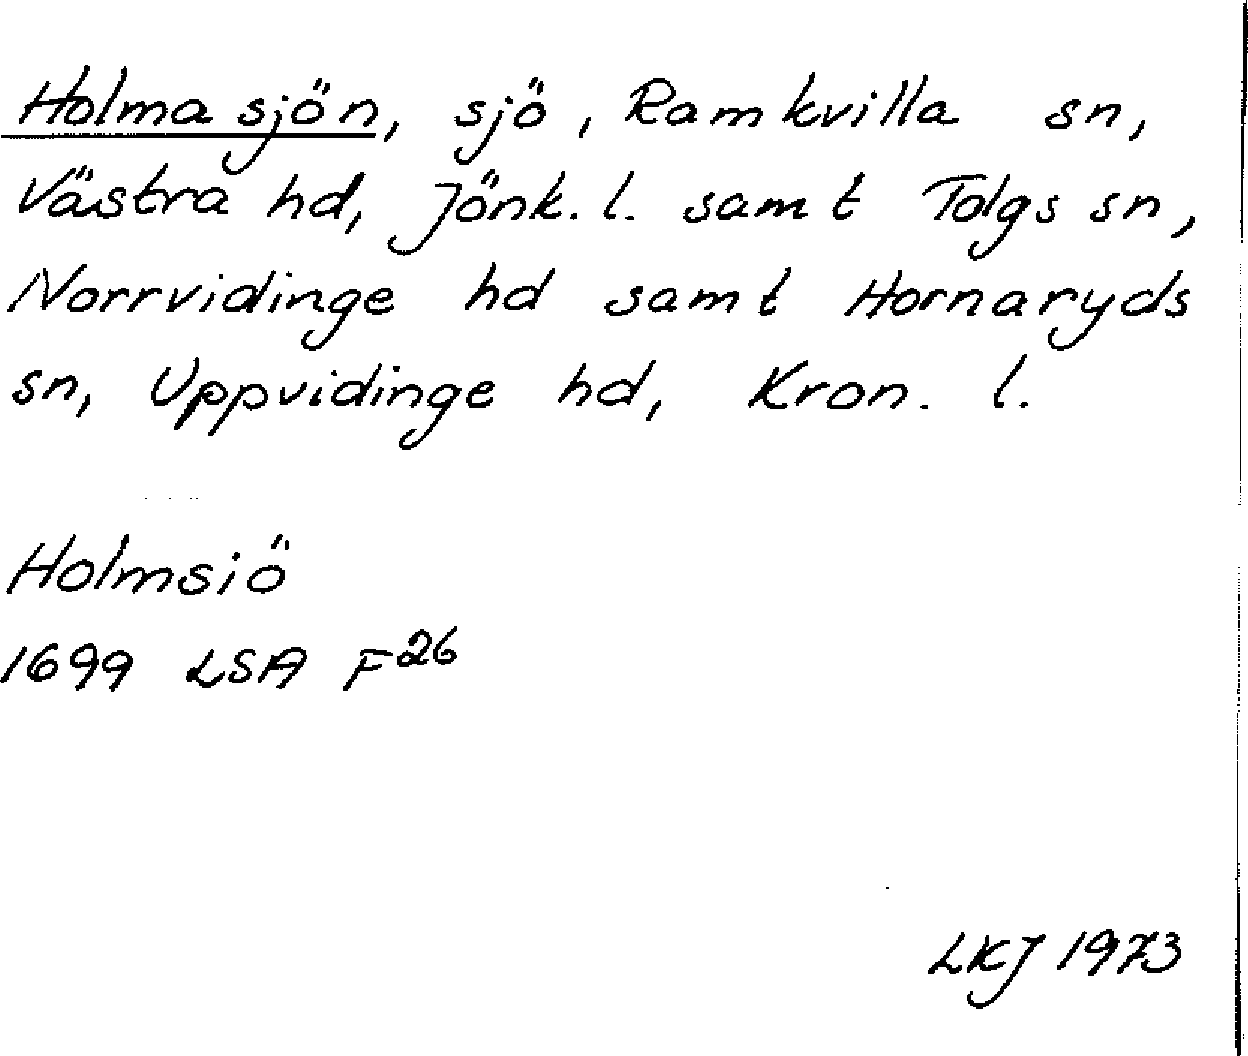 Holmasjön, sjö, Ramkvilla sn,
Västra hd, Jönk. l. samt Tolgs sn,
Norrvidinge hd samt Hornaryds
sn, Uppvidinge hd, Kron. l.
Holmsiö
1699 LSA F26
LKJ 1973